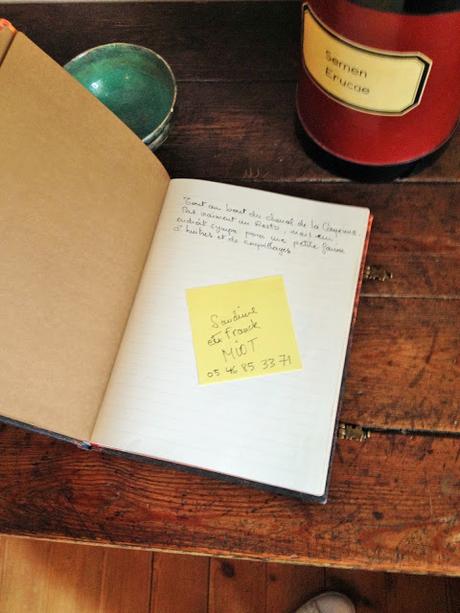 Semen
Erucae
Tout au bout du chenal de la Cayenne.
Pas vraiment un Resto, mais un
endroit sympa pour une petite faim
d'huîtres et de coquillages
Sandrine
et Franck
MIOT
05 46 85 33 71